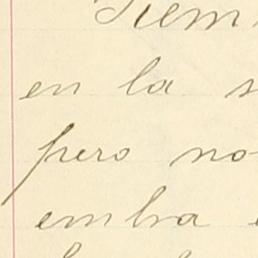 Siem
en la s
pero no
embra